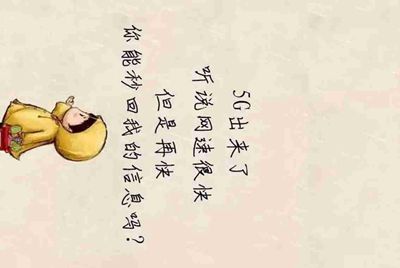 5G出来了
听说网速很快
但是再快
你能秒回我的信息吗？